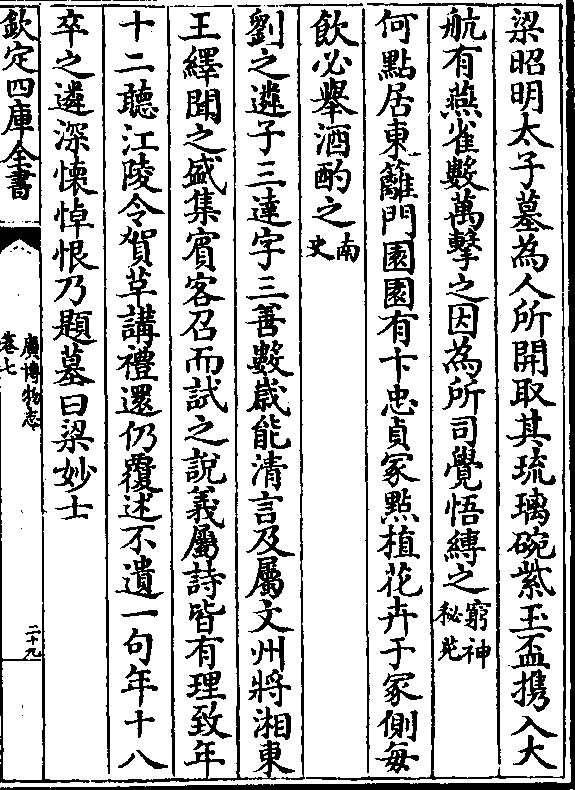 梁昭明太子墓為人所開取其琉璃碗紫玉盃攜入大
航有燕雀數萬擊之因為所司覺悟縛之窮神秘苑
何點居東籬門園園有卞忠貞冢點植花卉于冢側每
飲必舉酒酌之南史
劉之遴子三達字三善數嵗能清言及屬文州將湘東
王繹聞之盛集賓客召而試之說義屬詩皆有理致年
十二聽江陵令賀革講禮還仍覆述不遺一句年十八
卒之遴深懷悼恨乃題墓曰梁妙士
欽定四庫全書
廣博物志
卷七
二十九